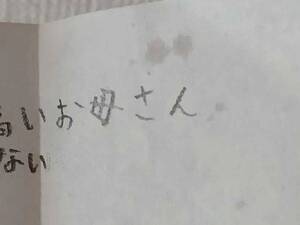 いお母さん
ない